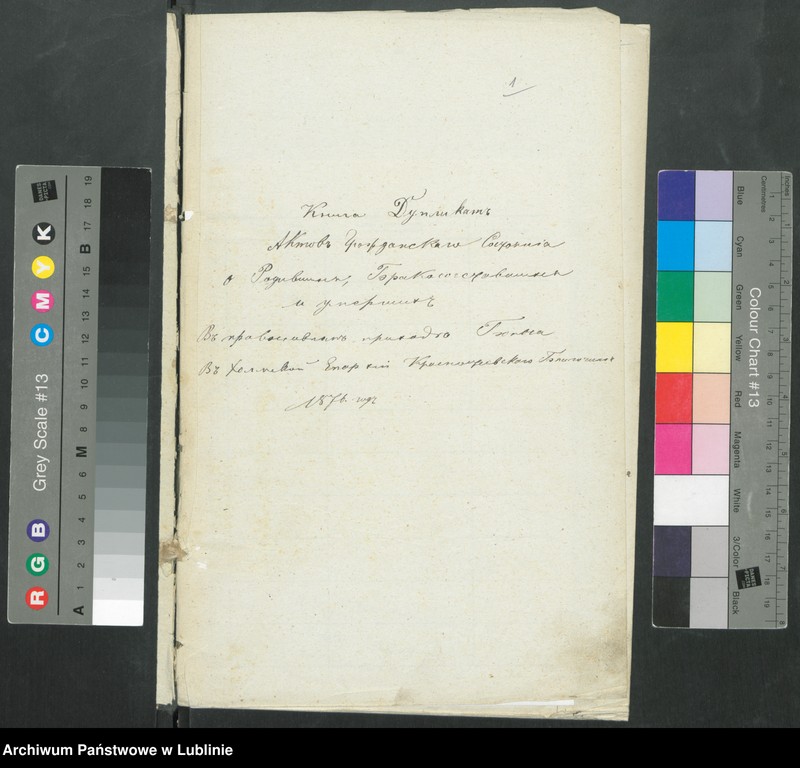 1
Книга Дупликатъ
Актовъ Гражданскаго Состоянія
о Родившихся, Бракосочетавшихся
и умершихъ
Въ православномъ приходѣ
Въ Холмской Епархіи Красноставскаго Благочинія
187 годъ
Grey Scale #13
R G B C M Y K
A 1 2 3 4 5 6 M 8 9 10 11 12 13 14 15 B 17 18 19
Colour Chart #13
Blue Cyan Green Yellow Red Magenta White 3/Color Black
Centimetres Inches
Archiwum Państwowe w Lublinie